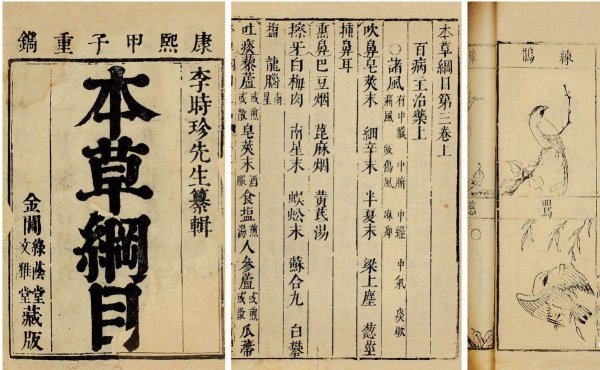 康熙甲子重鐫
李時珍先生纂輯
本草綱目
金閶
綠蔭堂
文雅堂
藏版
本草綱目第三卷上
百病主治藥上
○諸風 有中臟 中腑 中經 中氣 痰厥
痛風 破傷風 麻痺
吹鼻皂莢末 細辛末 半夏末 梁上塵 葱莖
插鼻耳
熏鼻巴豆烟 蓖麻烟 黃芪湯
擦牙白梅肉 南星末 蜈蚣末 蘇合丸 白礬
鹽 龍腦南星
吐痰藜蘆或煎或散 皂莢末酒服 食塩煎湯 人參蘆或煎或散 瓜蒂
練鵲